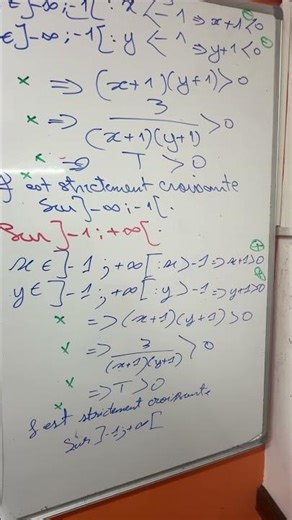 x ∈ ]-∞ ; -1[ : x < -1 ⇒ x+1 < 0
y ∈ ]-∞ ; -1[ : y < -1 ⇒ y+1 < 0
x ⇒ (x+1)(y+1) > 0
x ⇒ 3/((x+1)(y+1)) > 0
x ⇒ T > 0
f est strictement croissante
sur ]-∞ ; -1[.
Sur ]-1 ; +∞[.
x ∈ ]-1 ; +∞[ : x > -1 ⇒ x+1 > 0
y ∈ ]-1 ; +∞[ : y > -1 ⇒ y+1 > 0
x ⇒ (x+1)(y+1) > 0
x ⇒ 3/((x+1)(y+1)) > 0
x ⇒ T > 0
f est strictement croissante
sur ]-1 ; +∞[